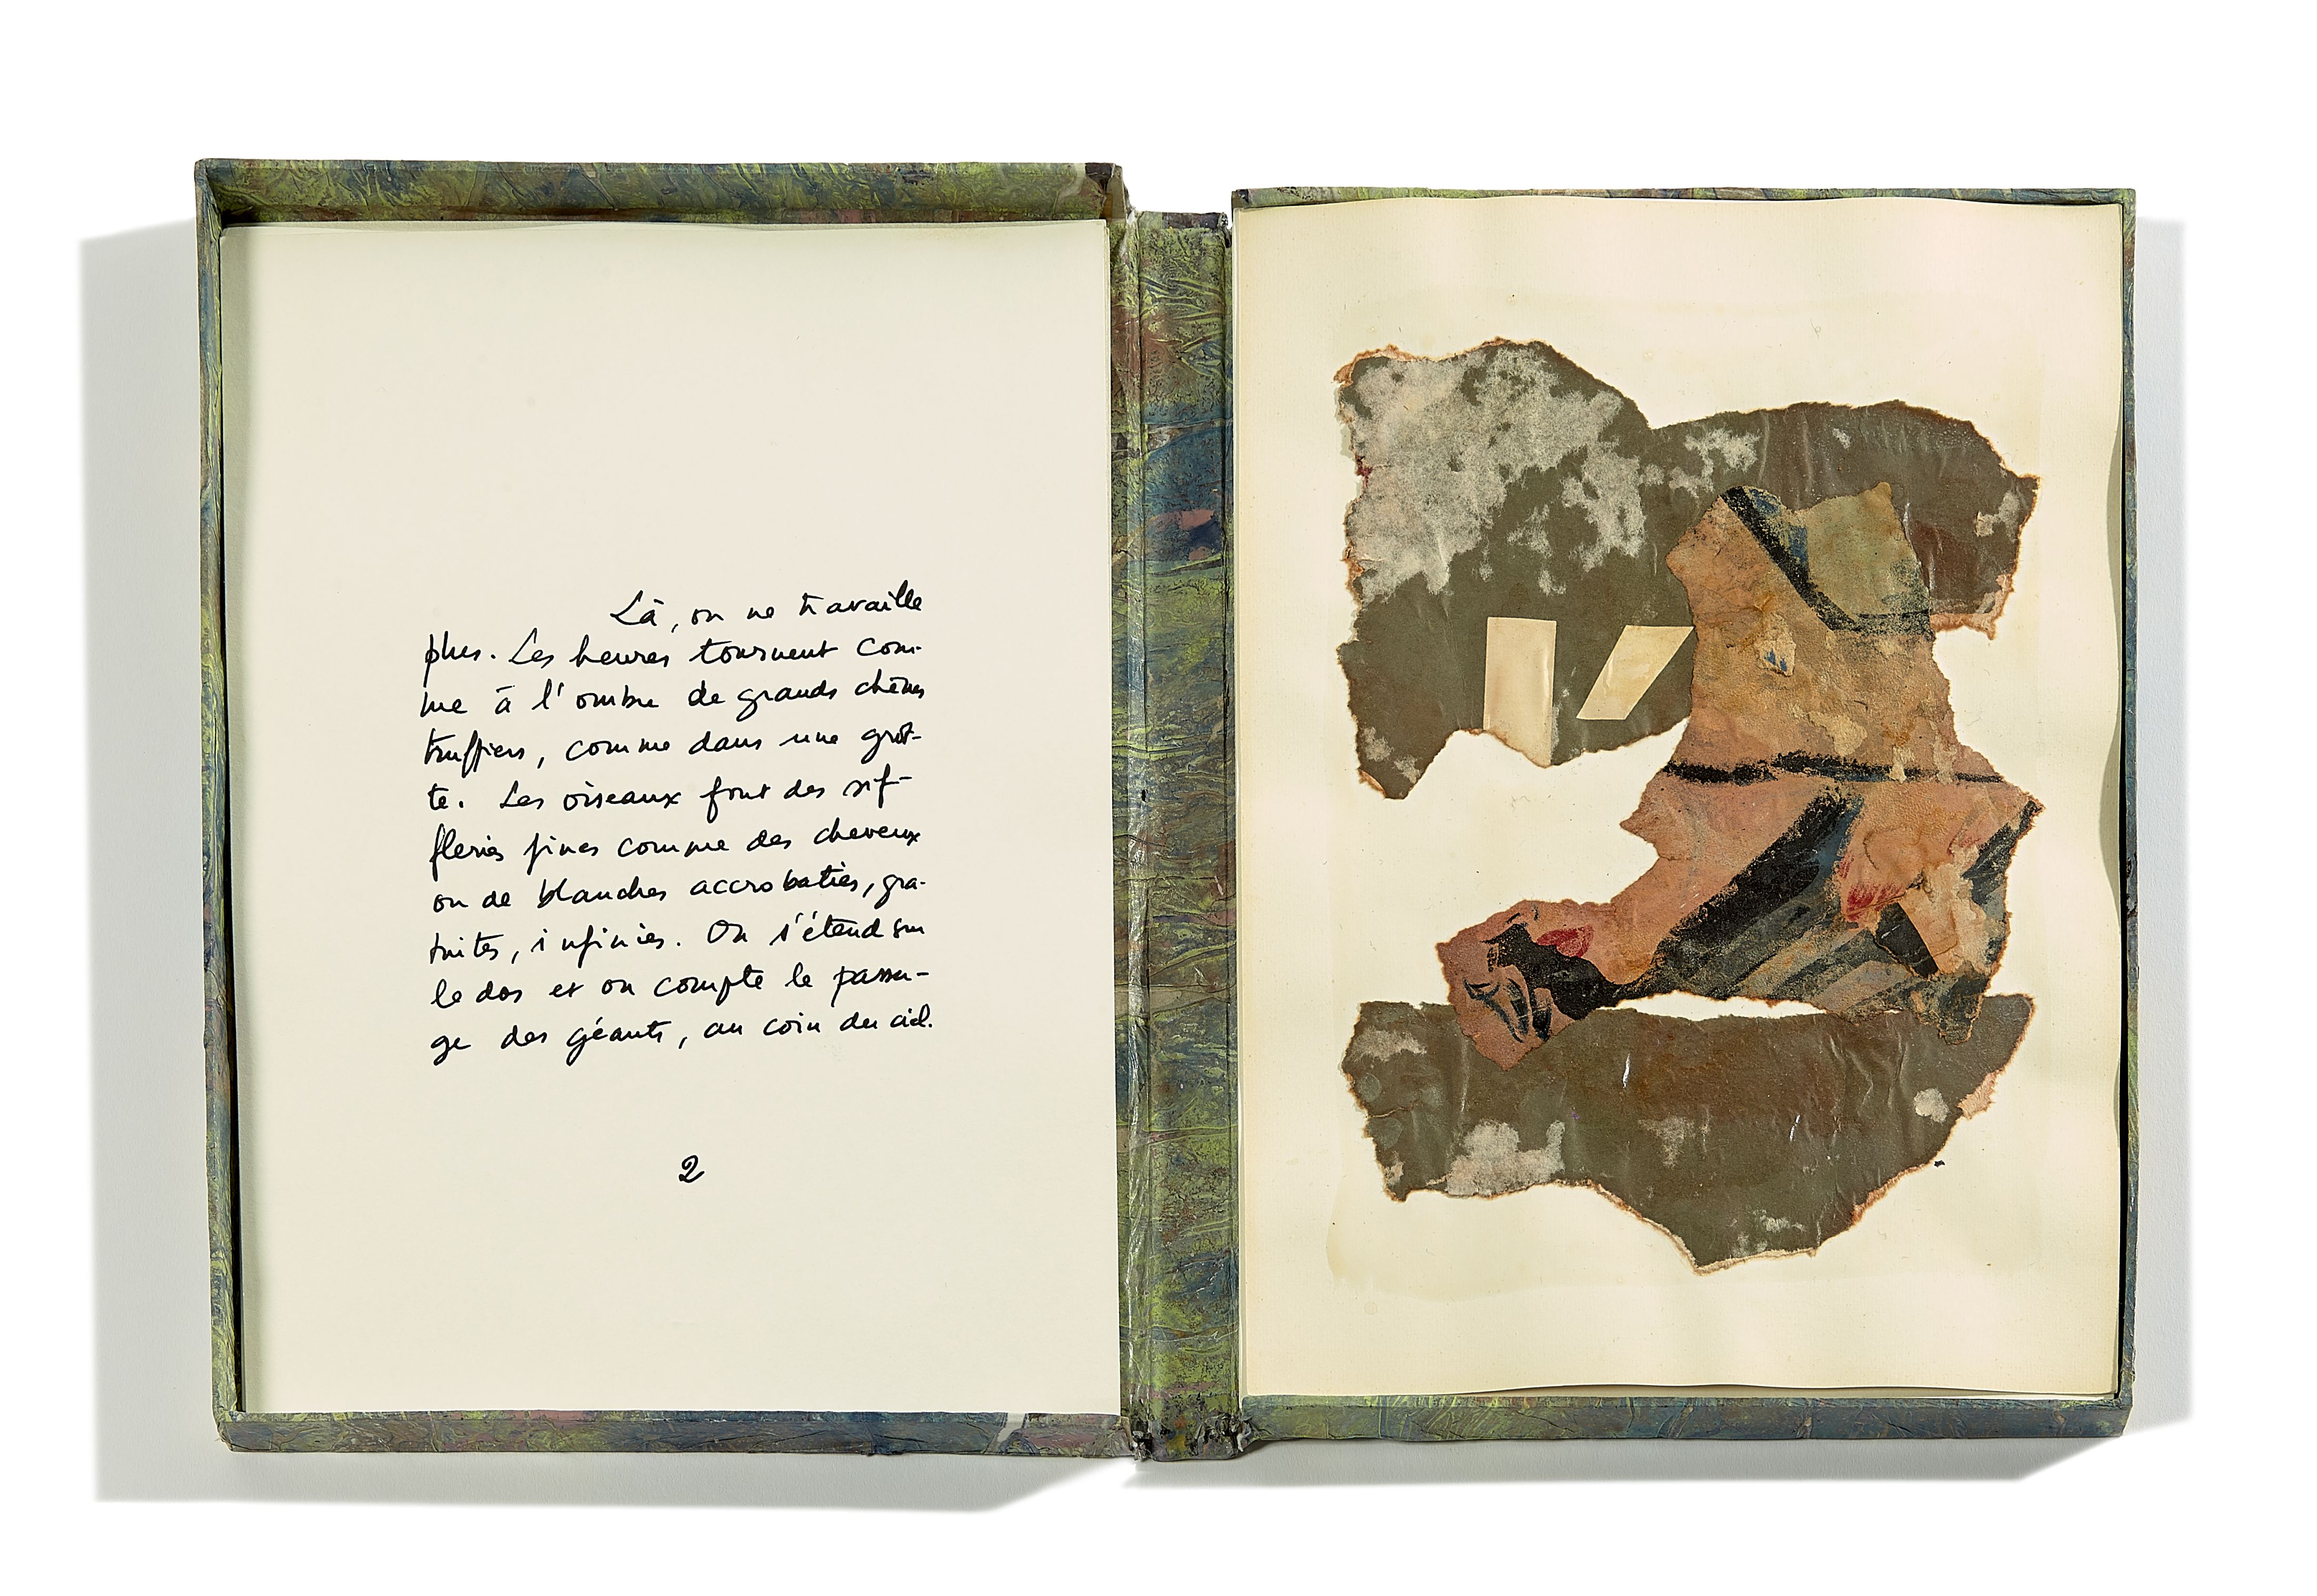 Là, on ne travaille
plus. Les heures tournent com-
me à l'ombre de grands chênes
truffiers, comme dans une grot-
te. Les oiseaux font des sif-
fleries fines comme des cheveux
ou de blanches accrobaties, gra-
tuites, infinies. On s'étend sur
le dos et on compte le passa-
ge des géants, au coin du ciel.
2